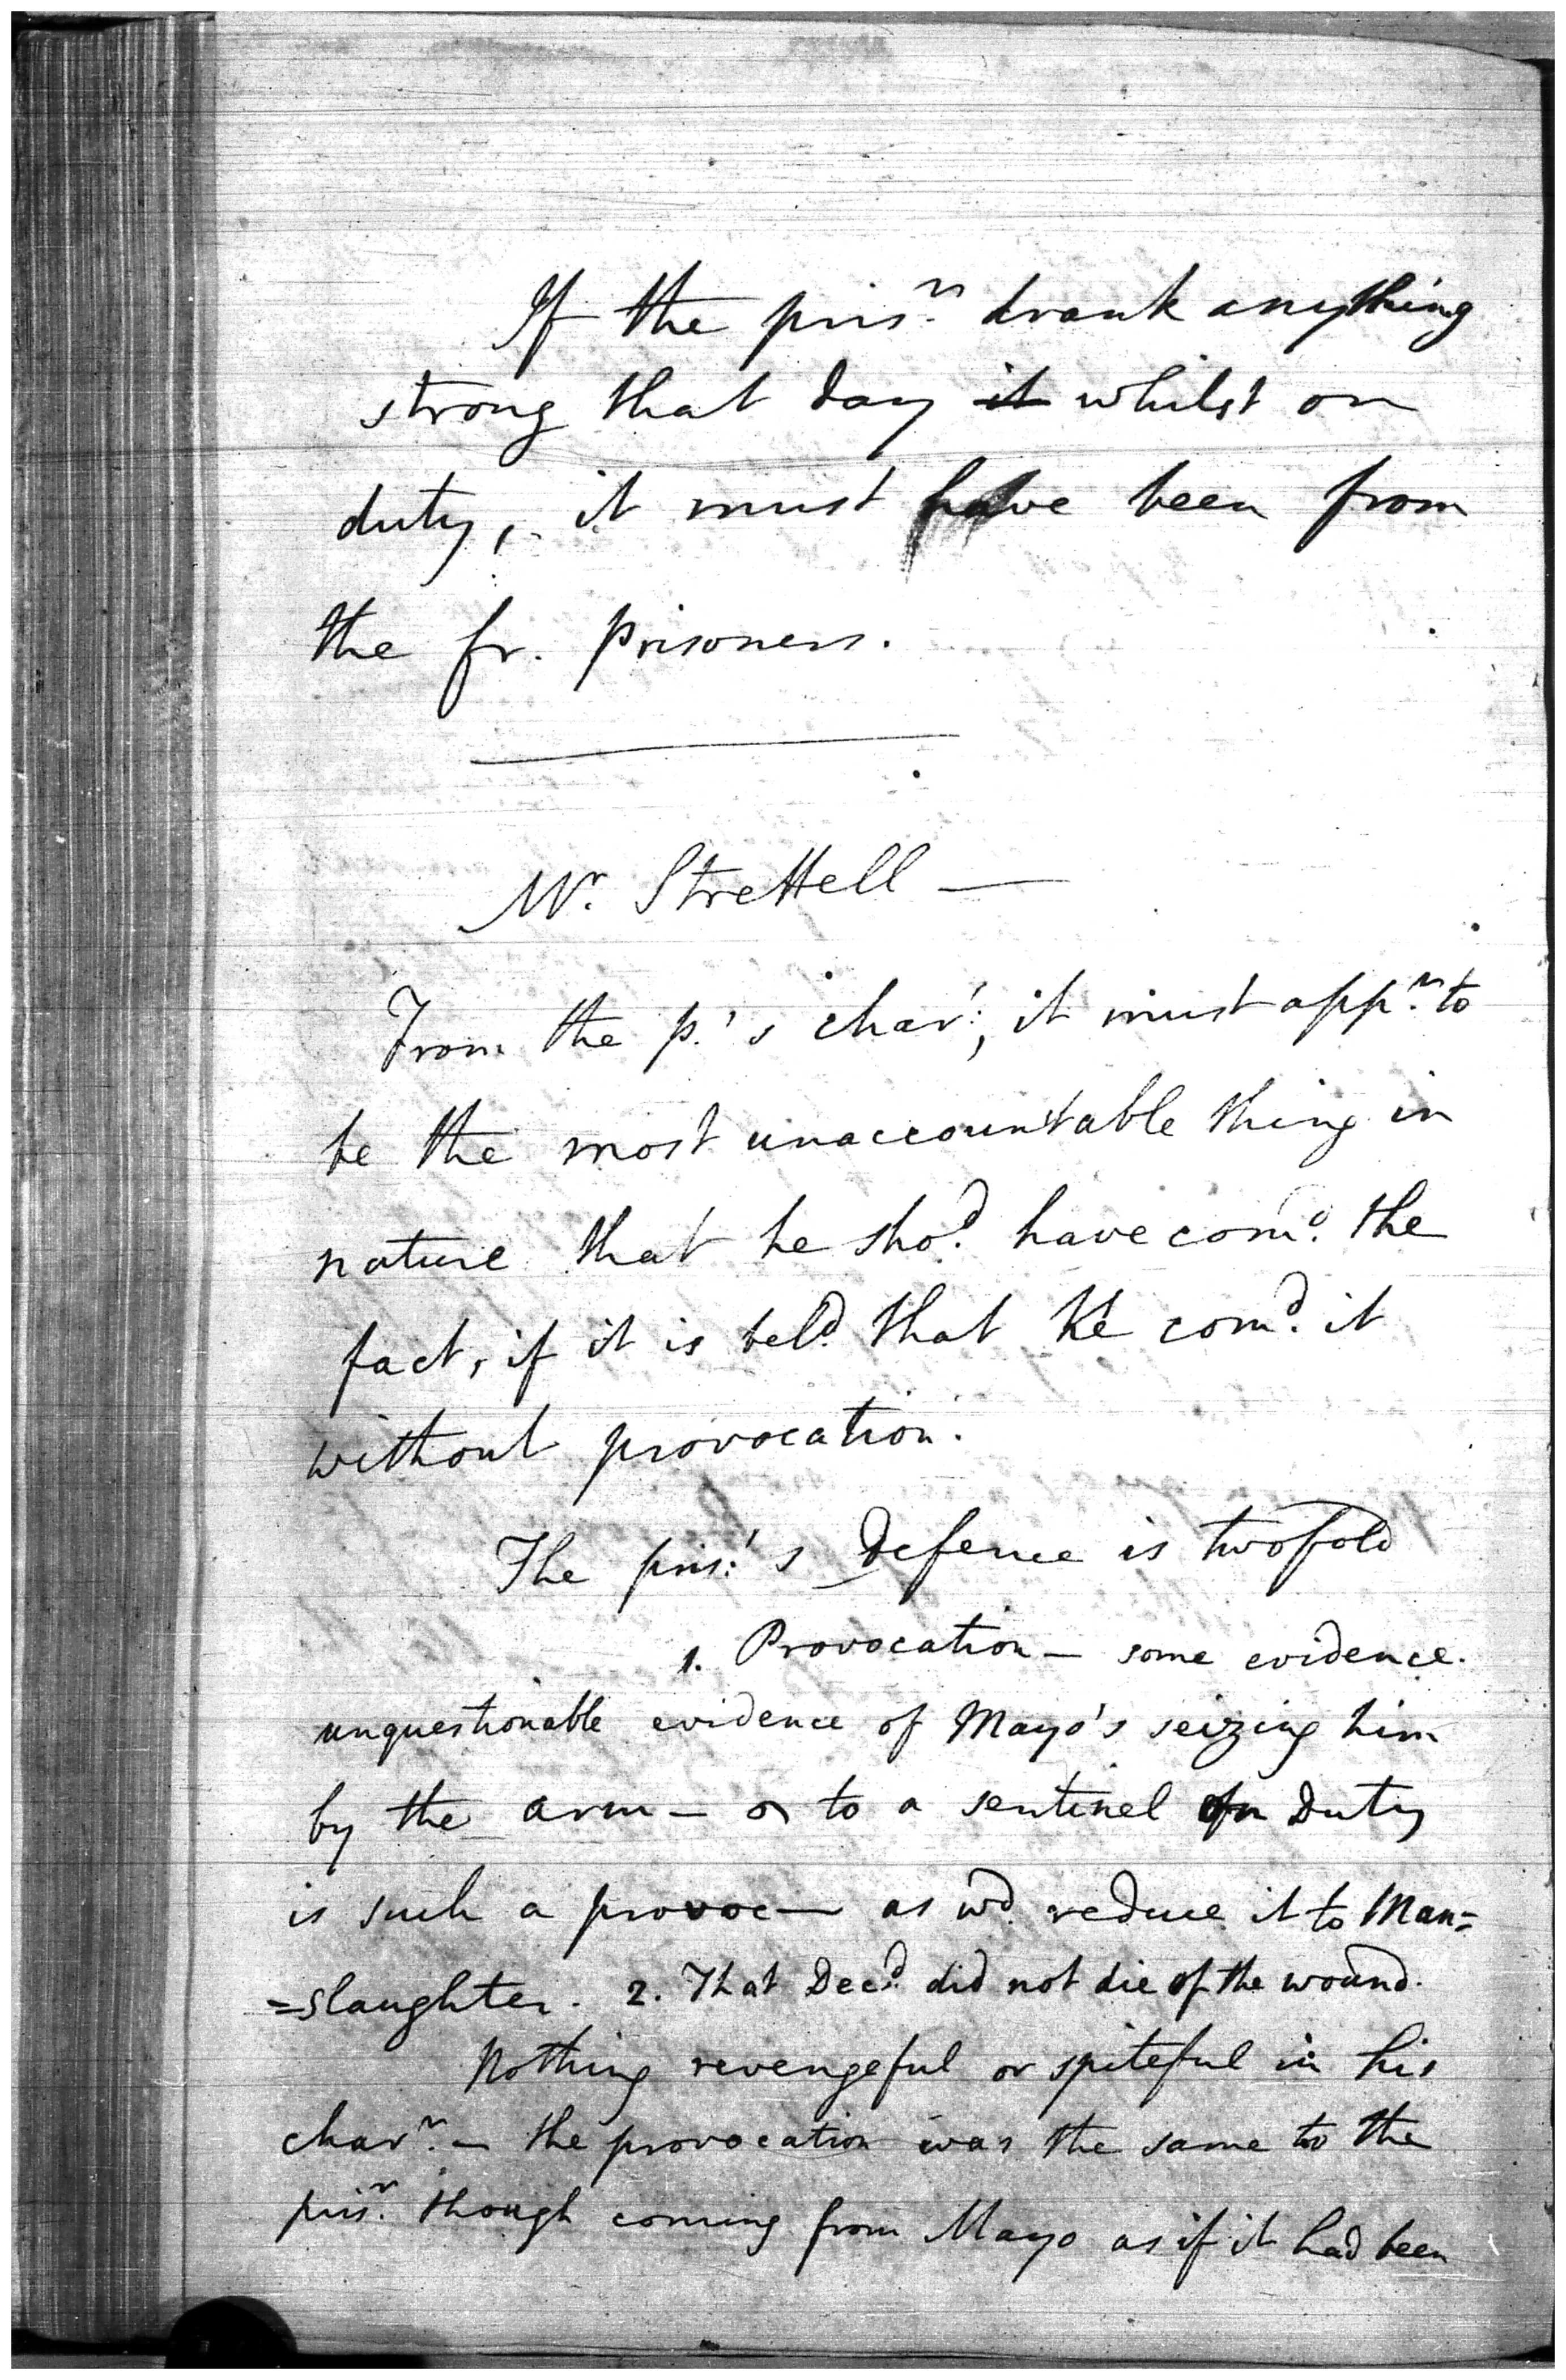 If the prisr. drank anything
strong that day it whilst on
duty, it must have been from
the fr. prisoners.
Mr. Strettell —
From the p.'s char:, it must appr. to
be the most unaccountable thing in
nature that he shod. have comd. the
fact, if it is beld. that he comd. it
without provocation.
The pris:'s Defence is twofold
1. Provocation — some evidence.
unquestionable evidence of Mayo's seizing him
by the arm — to a sentinel on Duty
is such a provoc— as wd. reduce it to Man=
=slaughter. 2. That Decd. did not die of the wound.
Nothing revengeful or spiteful in his
charr. — the provocation was the same to the
prisr. though coming from Mayo as if it had been